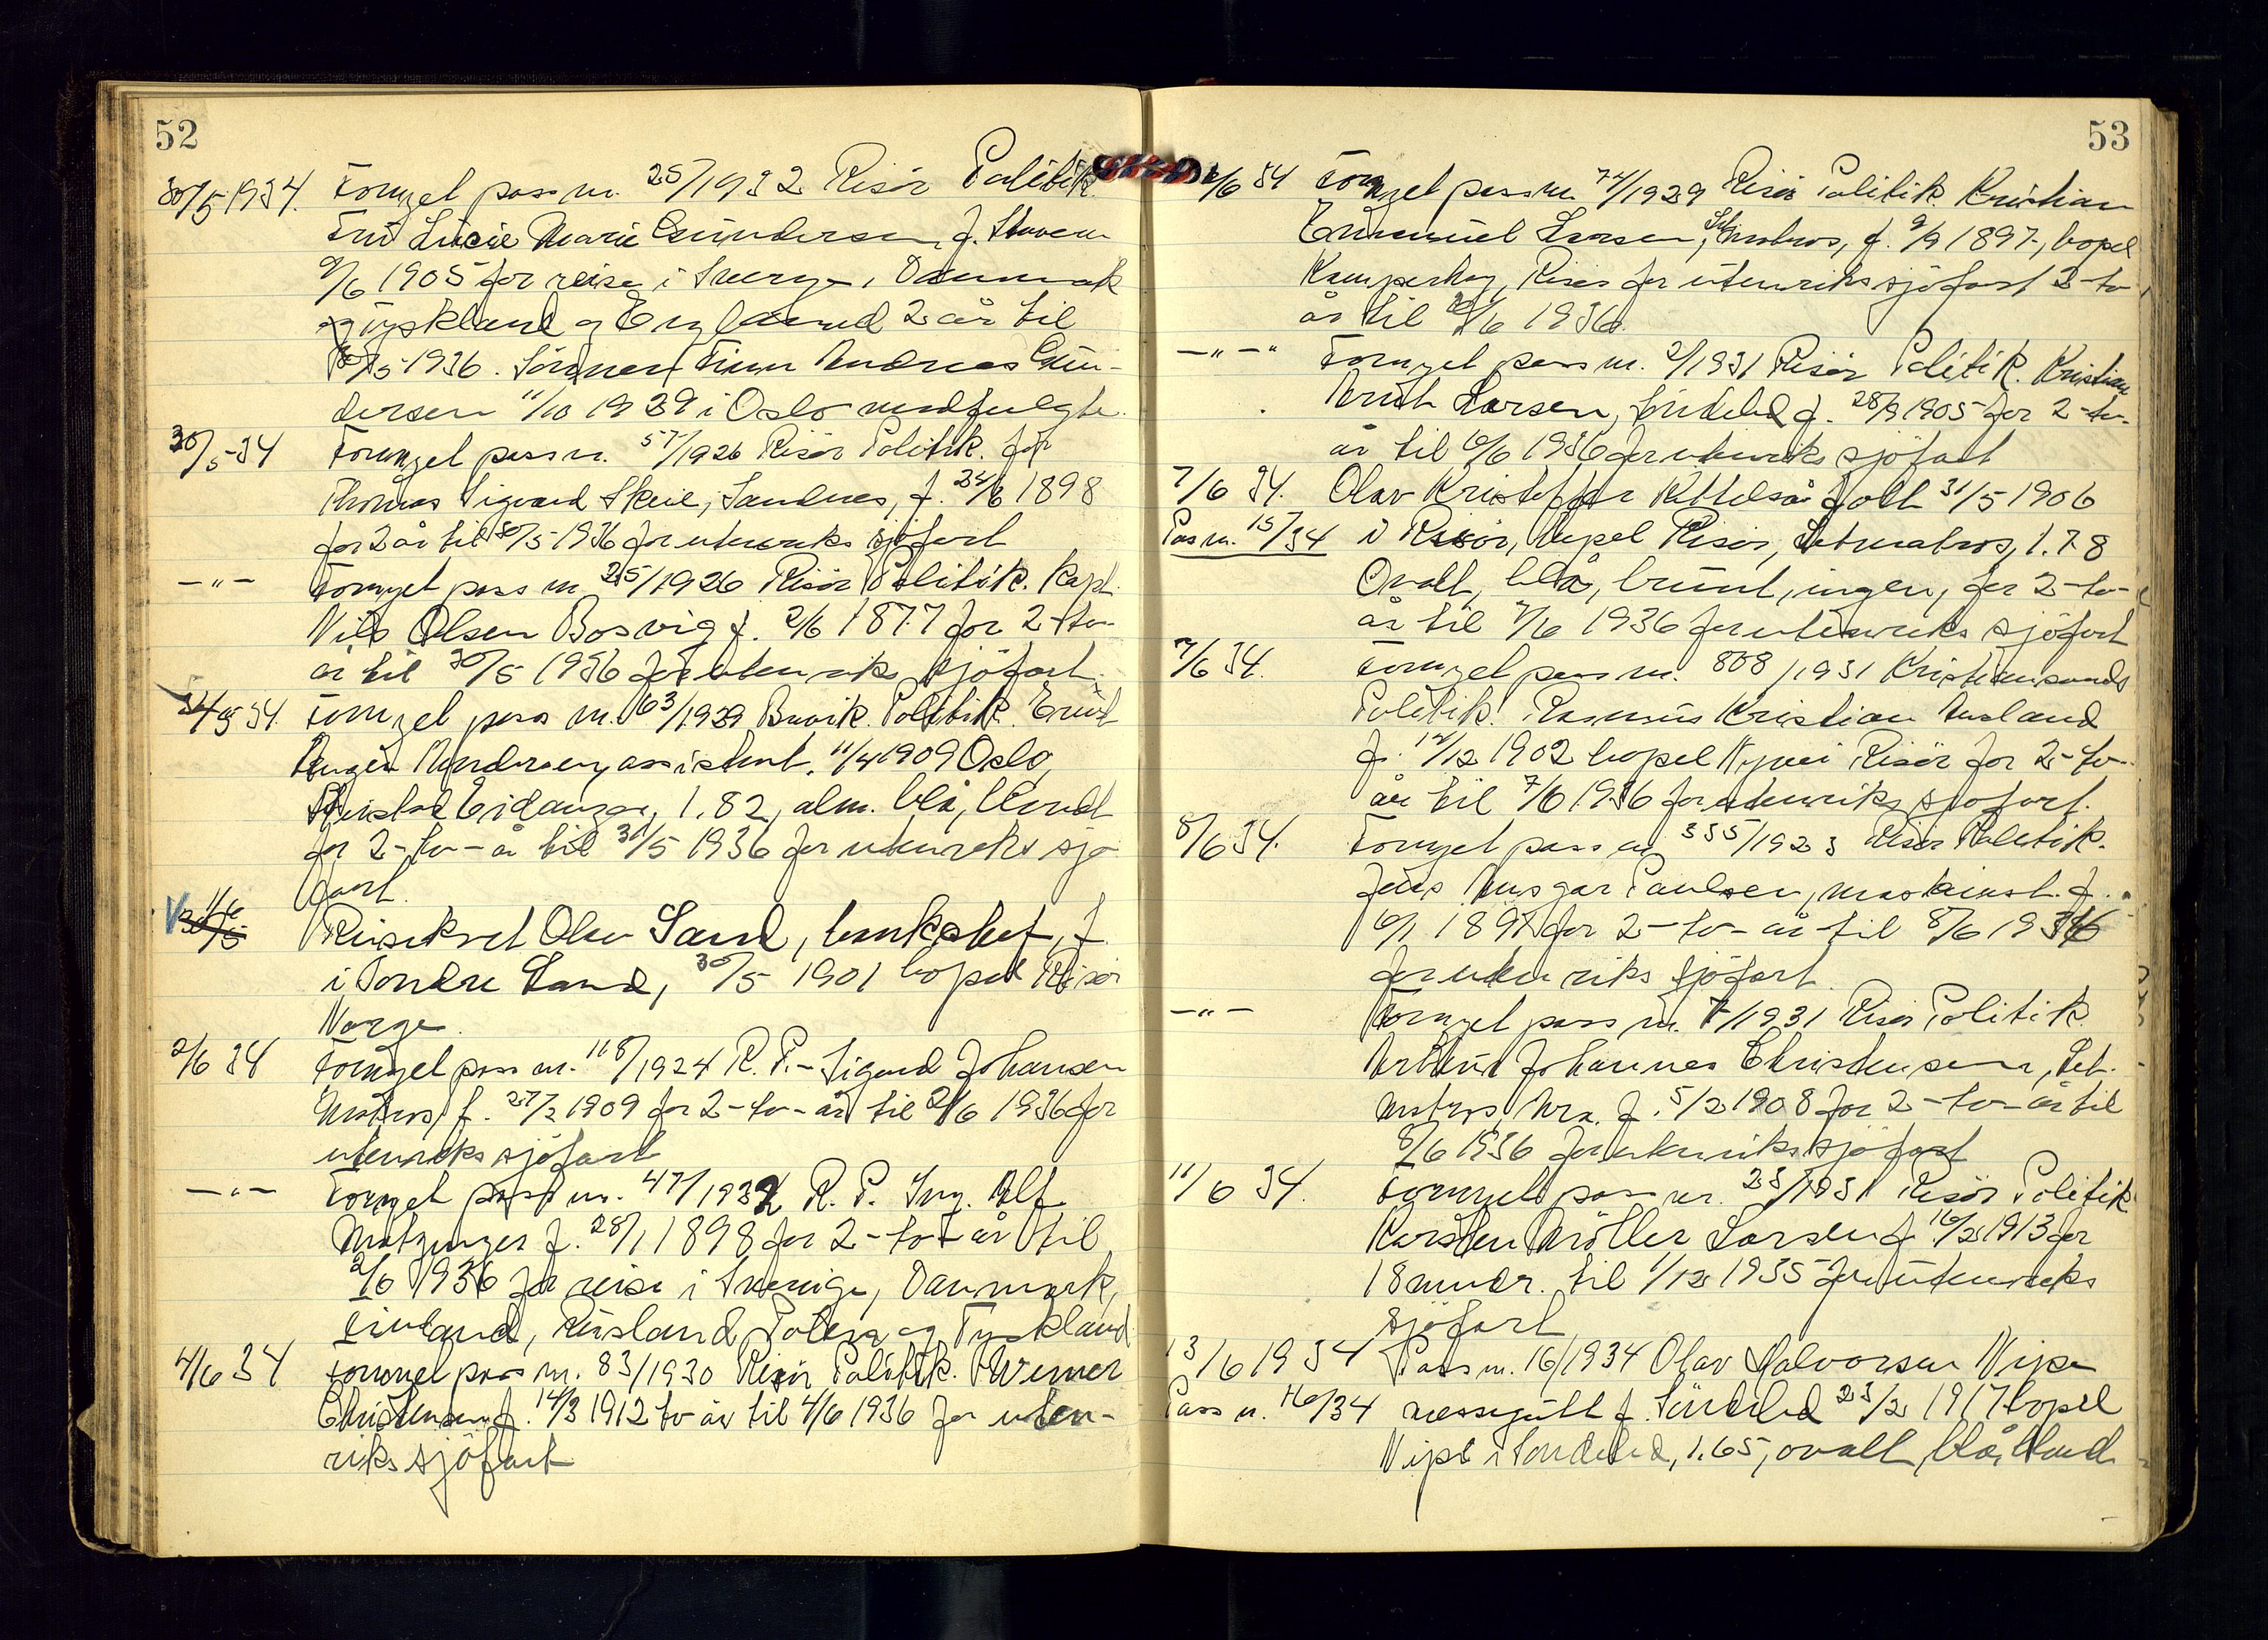 52
30/5 1934. Fornyet pass nr. 25/1932 Risör Politik.
Fru Lucie Marie Gundersen, f.
9/6 1905 for reise i Sverge, Danmark
og Tyskland og England 2 år til
30/5 1936. Sönnen Finn Andreas Gun-
dersen 11/10 1929 i Oslo medfulgte.
30/5-34 Fornyet pass nr. 57/1926 Risör Politik. for
Thomas Sigvard Skeie, Sandnes, f. 24/6 1898
for 2 år til 30/5 1936 for utenriks sjöfart
—"— Fornyet pass nr. 25/1926 Risör Politik. Kapt.
Nils Olsen Bosvig f. 2/6 1877 for 2-to-
år til 30/5 1936 for utenriks sjöfart.
31/5 34. Fornyet pass nr. 63/1929 Politik.
Andersen, assistent, 11/4 1909 Oslo,
Eidanger, 1.82, alm. blå, blondt
for 2-to-år til 31/5 1936 for utenriks sjö
fart.
11/6
30/5 Reisekort Olav Sand, banksjef, f.
i Söndre Land, 30/5 1901 bopel Risör
Norge.
2/6 34 Fornyet pass nr. 118/1924 R. P. - Sigurd Johansen
Matros, f. 27/2 1909 for 2-to-år til 2/6 1936 for
utenriks sjöfart
—"— Fornyet pass nr. 47/1932 R. P. Ing. Alf
f. 28/1 1898 for 2-to-år til
2/6 1936 for reise i Sverige, Danmark,
Finland, Rusland, Polen og Tyskland.
4/6 34 Fornyet pass nr. 83/1930 Risör Politik. Werner
Christensen f. 14/3 1912 to år til 4/6 1936 for uten-
riks sjöfart
53
/6 34 Fornyet pass nr. 74/1929 Risör Politik. Kristian
Emanuel Larsen, matros, f. 9/9 1897, bopel
Kamperhaug, Risör for utenriks sjöfart 2-to-
år til /6 1936.
—"—" Fornyet pass nr. 2/1931 Risör Politik. Kristian
Larsen, Söndeled f. 28/9 1905 for 2-to-
år til 6/6 1936 for utenriks sjöfart
7/6 34. Olav Kristoffer Kittelså född 31/5 1906
Pass nr. 15/34 i Risör, bopel Risör, Letmatros, 1.78
Ovalt, blå, brunt, ingen, for 2-to-
år til 7/6 1936 for utenriks sjöfart
7/6 34. Fornyet pass nr. 808/1931 Kristiansands
Politik. Rasmus Kristian Ausland
f. 12/12 1902 bopel Nyvei Risör for 2-to-
år til 7/6 1936 for utenriks sjöfart.
8/6 34. Fornyet pass nr. 335/1923 Risör Politik.
Jens Ansgar Paulsen, maskinist. f.
6/1 1897 for 2-to-år til 8/6 1936
for utenriks sjöfart.
—"— Fornyet pass nr. 7/1931 Risör Politik.
Johannes Christensen, Let-
matros, f. 5/2 1908 for 2-to-år til
8/6 1936 for utenriks sjöfart
11/6 34. Fornyet pass nr. 23/1931 Risör Politik
Karsten Möller Larsen f. 16/2 1913 for
18 mndr. til 1/12 1935 for utenriks
sjöfart
13/6 1934 Pass nr. 16/1934 Olav Halvorsen Nipe
Pass nr. 16/34 messegutt f. Söndeled 23/2 1917 bopel
Nipe i Söndeled, 1.65, ovalt, blå, blond